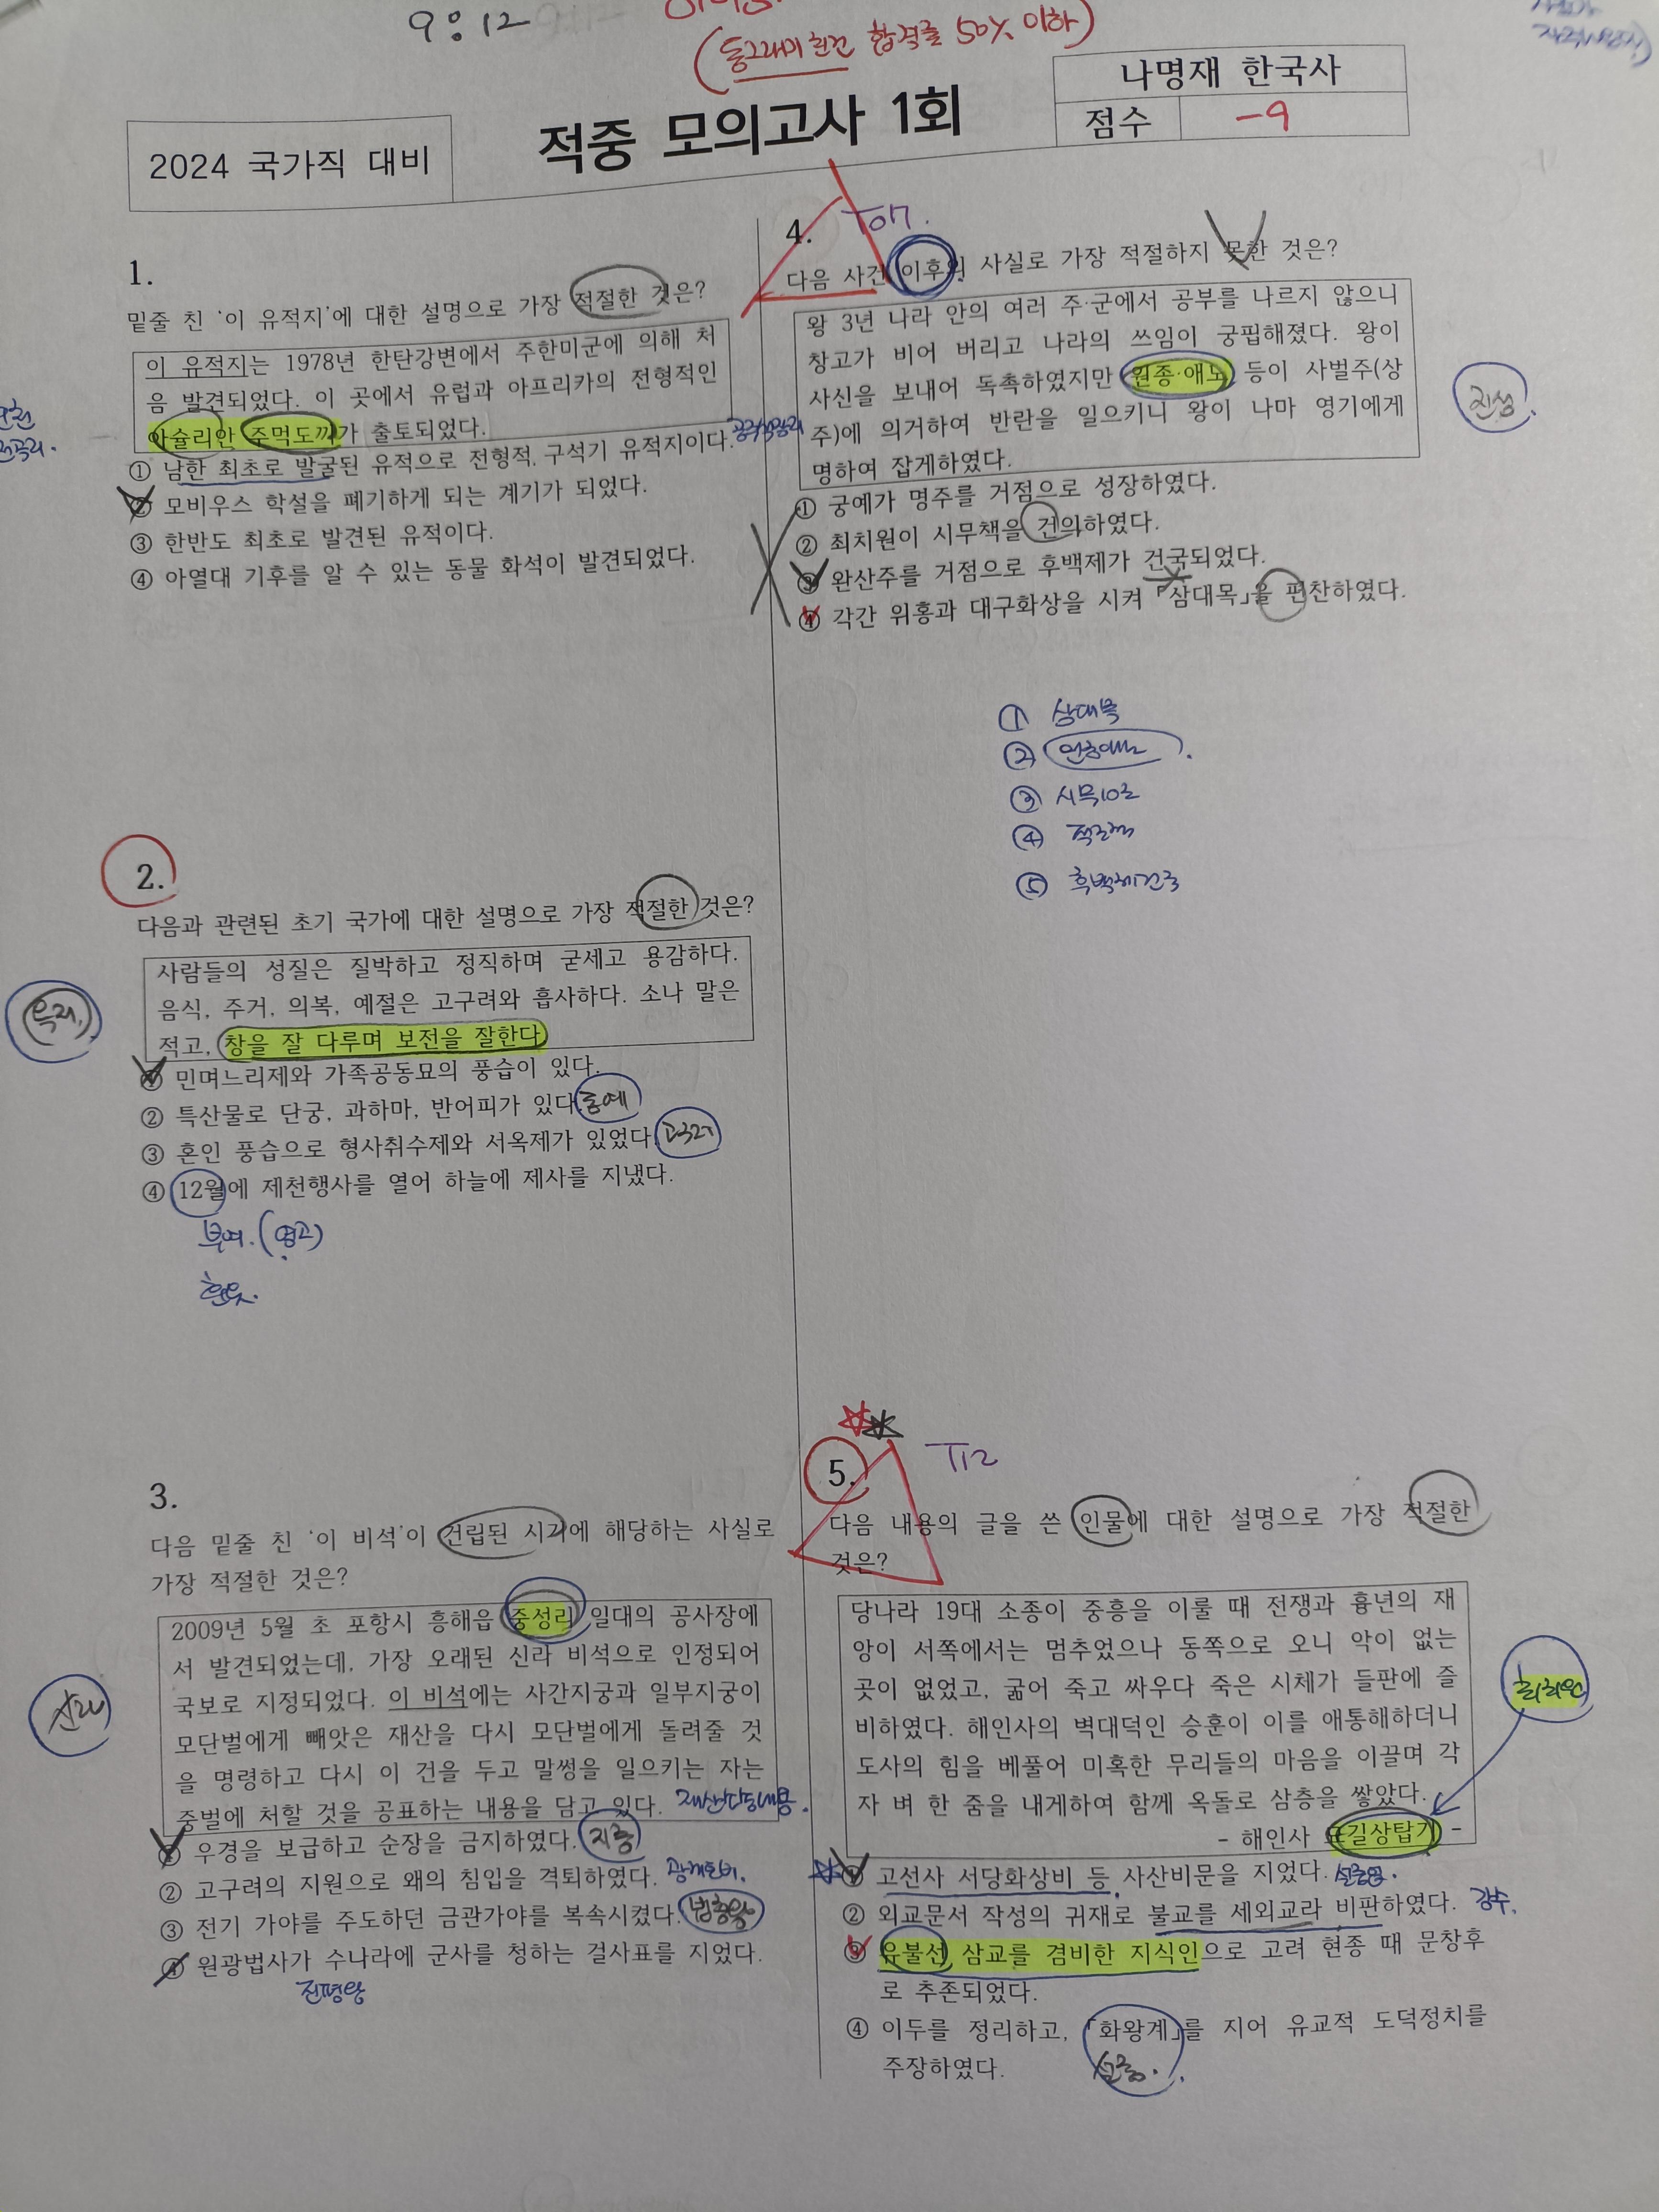 9:12
(동그래미 친건 합격률 50% 이하)
2024 국가직 대비
적중 모의고사 1회
나명재 한국사
점수
-9
1.
밑줄 친 '이 유적지'에 대한 설명으로 가장 적절한 것은?
이 유적지는 1978년 한탄강변에서 주한미군에 의해 처
음 발견되었다. 이 곳에서 유럽과 아프리카의 전형적인
아슐리안 주먹도끼가 출토되었다.
① 남한 최초로 발굴된 유적으로 전형적, 구석기 유적지이다.
② 모비우스 학설을 폐기하게 되는 계기가 되었다.
③ 한반도 최초로 발견된 유적이다.
④ 아열대 기후를 알 수 있는 동물 화석이 발견되었다.
2.
다음과 관련된 초기 국가에 대한 설명으로 가장 적절한 것은?
사람들의 성질은 질박하고 정직하며 굳세고 용감하다.
음식, 주거, 의복, 예절은 고구려와 흡사하다. 소나 말은
적고, 창을 잘 다루며 보전을 잘한다
옥저
① 민며느리제와 가족공동묘의 풍습이 있다.
② 특산물로 단궁, 과하마, 반어피가 있다. 동예
③ 혼인 풍습으로 형사취수제와 서옥제가 있었다. 고구려
④ 12월에 제천행사를 열어 하늘에 제사를 지냈다.
부여.(영고)
3.
다음 밑줄 친 '이 비석'이 건립된 시기에 해당하는 사실로
가장 적절한 것은?
2009년 5월 초 포항시 흥해읍 중성리 일대의 공사장에
서 발견되었는데, 가장 오래된 신라 비석으로 인정되어
국보로 지정되었다. 이 비석에는 사간지궁과 일부지궁이
모단벌에게 빼앗은 재산을 다시 모단벌에게 돌려줄 것
을 명령하고 다시 이 건을 두고 말썽을 일으키는 자는
중벌에 처할 것을 공표하는 내용을 담고 있다.
신라
① 우경을 보급하고 순장을 금지하였다. 지증
② 고구려의 지원으로 왜의 침입을 격퇴하였다. 광개토비.
③ 전기 가야를 주도하던 금관가야를 복속시켰다. 법흥왕
④ 원광법사가 수나라에 군사를 청하는 걸사표를 지었다.
진평왕
4.
다음 사건 이후의 사실로 가장 적절하지 못한 것은?
왕 3년 나라 안의 여러 주·군에서 공부를 나르지 않으니
창고가 비어 버리고 나라의 쓰임이 궁핍해졌다. 왕이
사신을 보내어 독촉하였지만 원종·애노 등이 사벌주(상
주)에 의거하여 반란을 일으키니 왕이 나마 영기에게
명하여 잡게하였다.
진성
① 궁예가 명주를 거점으로 성장하였다.
② 최치원이 시무책을 건의하였다.
③ 완산주를 거점으로 후백제가 건국되었다.
④ 각간 위홍과 대구화상을 시켜 「삼대목」을 편찬하였다.
① 삼대목
② 원종애노
③ 시무10조
④ 적고적
⑤ 후백제건국
5.
T12
다음 내용의 글을 쓴 인물에 대한 설명으로 가장 적절한
것은?
당나라 19대 소종이 중흥을 이룰 때 전쟁과 흉년의 재
앙이 서쪽에서는 멈추었으나 동쪽으로 오니 악이 없는
곳이 없었고, 굶어 죽고 싸우다 죽은 시체가 들판에 즐
비하였다. 해인사의 벽대덕인 승훈이 이를 애통해하더니
도사의 힘을 베풀어 미혹한 무리들의 마음을 이끌며 각
자 벼 한 줌을 내게하여 함께 옥돌로 삼층을 쌓았다.
- 해인사 묘길상탑기 -
최치원
① 고선사 서당화상비 등 사산비문을 지었다.
② 외교문서 작성의 귀재로 불교를 세외교라 비판하였다. 강수.
③ 유불선 삼교를 겸비한 지식인으로 고려 현종 때 문창후
로 추존되었다.
④ 이두를 정리하고, 「화왕계」를 지어 유교적 도덕정치를
주장하였다.
설총.